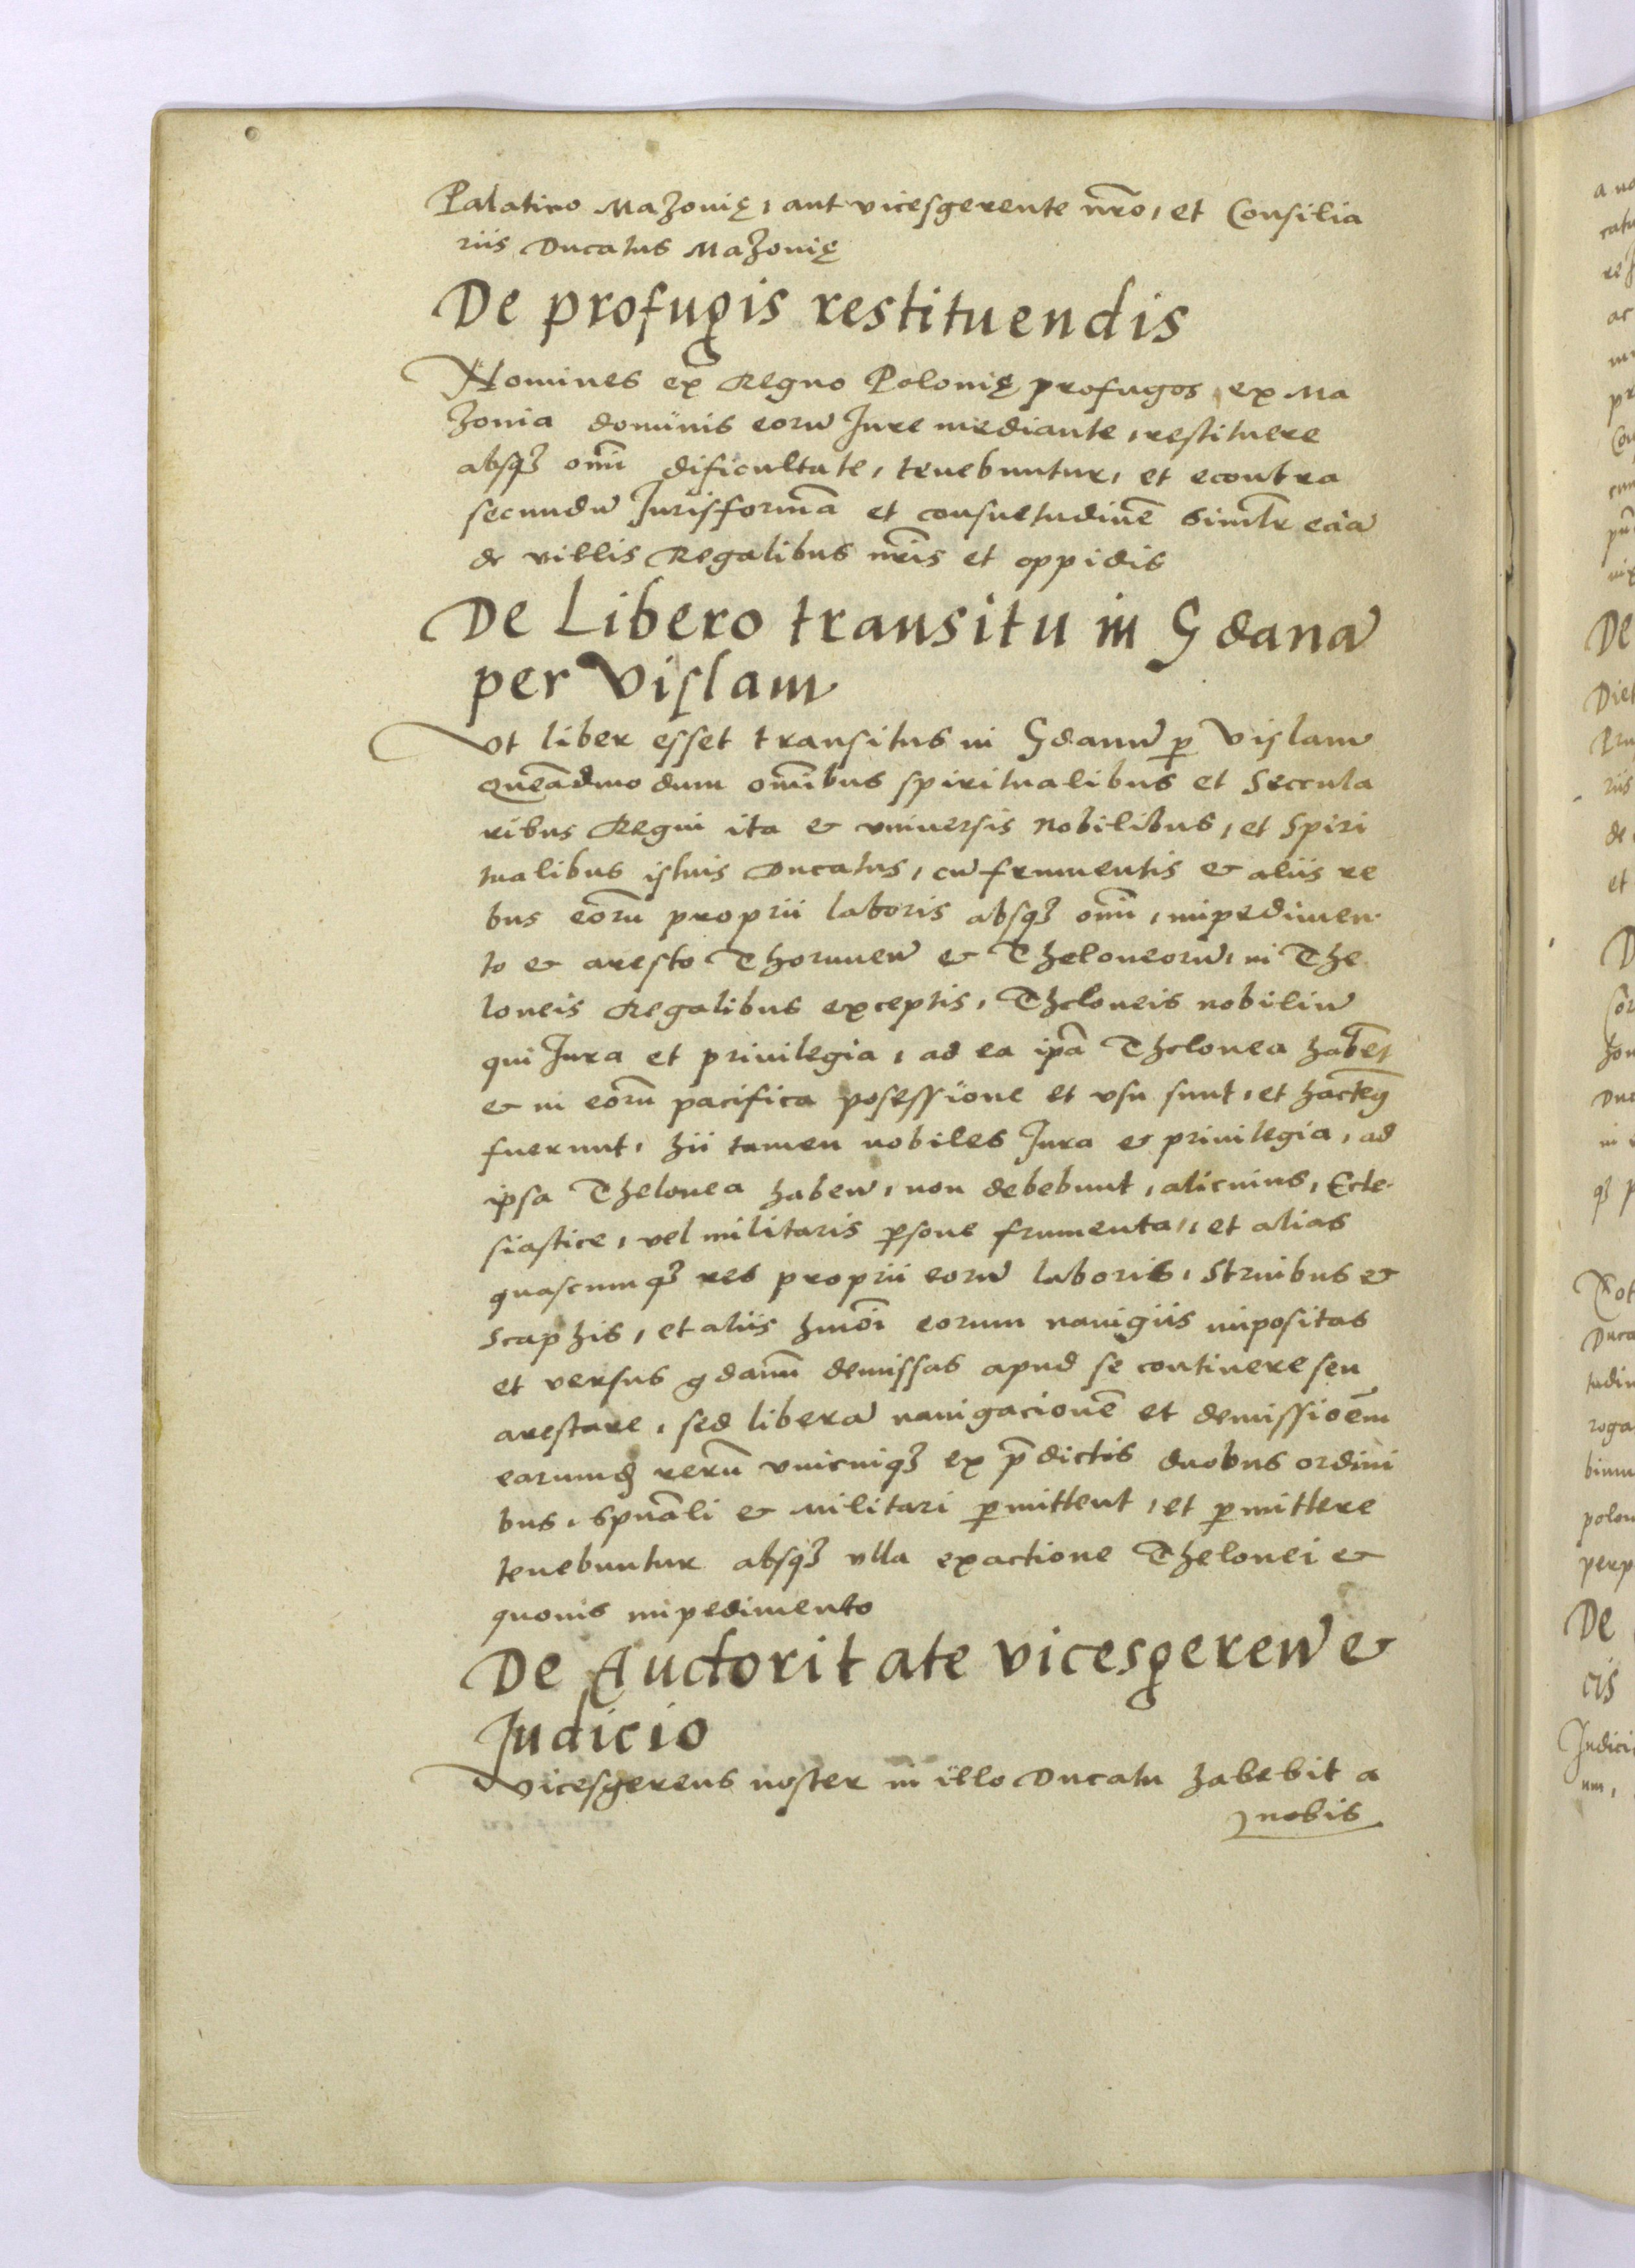 Palatino Mazonię, aut vicesgerente nr̃o, et Consilia
riis Ducatus Mazonię
De profugis restituendis
Homines ex Regno Polonię profugos, ex Ma
zonia dominis eorũ Jure mediante, restituere
absq₃ om̃i dificultate, tenebuntur, et econtra
secundũ Jurisformã et consuetudinẽ simił̃r eciã
de villis Regalibus nr̃is et oppidis
De Libero transitu in Gdanũ
per Vislam
Vt liber esset transitus in Gdanũ ꝑ Vislam
quẽadmodum om̃ibus spiritualibus et Seccula
ribus Regni ita & vniversis Nobilibus, et Spiri
tualibus istius Ducatus, cũ frumentis & aliis re
bus eor̃u proprii laboris absq₃ om̃i, impedimen
to & aresto Thorunen̄ & Theloneorũ, in The
loneis Regalibus exceptis, Theloneis nobiliũ
qui Jura et privilegia, ad ea ip̃a Thelonea hab̃et
& in eor̃u pacifica posessione et vsu sunt, et hacten9
fuerunt, hii tamen nobiles Jura & privilegia, ad
ipsa Thelonea haben̄, non debebunt, alicuius, Ecle
siastice, vel militaris ꝑsone frumenta, et alias
quascumq₃ res proprii eorũ laboris, Struibus &
Scaphis, et aliis hmõi eorum navigiis impositas
et versus gdanũ demissas apud se continere seu
arestare, sed liberã navigacionẽ et demissiõem
earumd̃ rer̃u vnicuiq₃ ex p̃dictis duobus ordini
bus, spũali & militari ꝑmittent, et ꝑmittere
tenebuntur absq₃ vlla exactione Thelonei &
quovis impedimento
De Auctoritate vicesgeren̄ &
Judicio
Vicesgerens noster in illo Ducatu habebit a
nobis